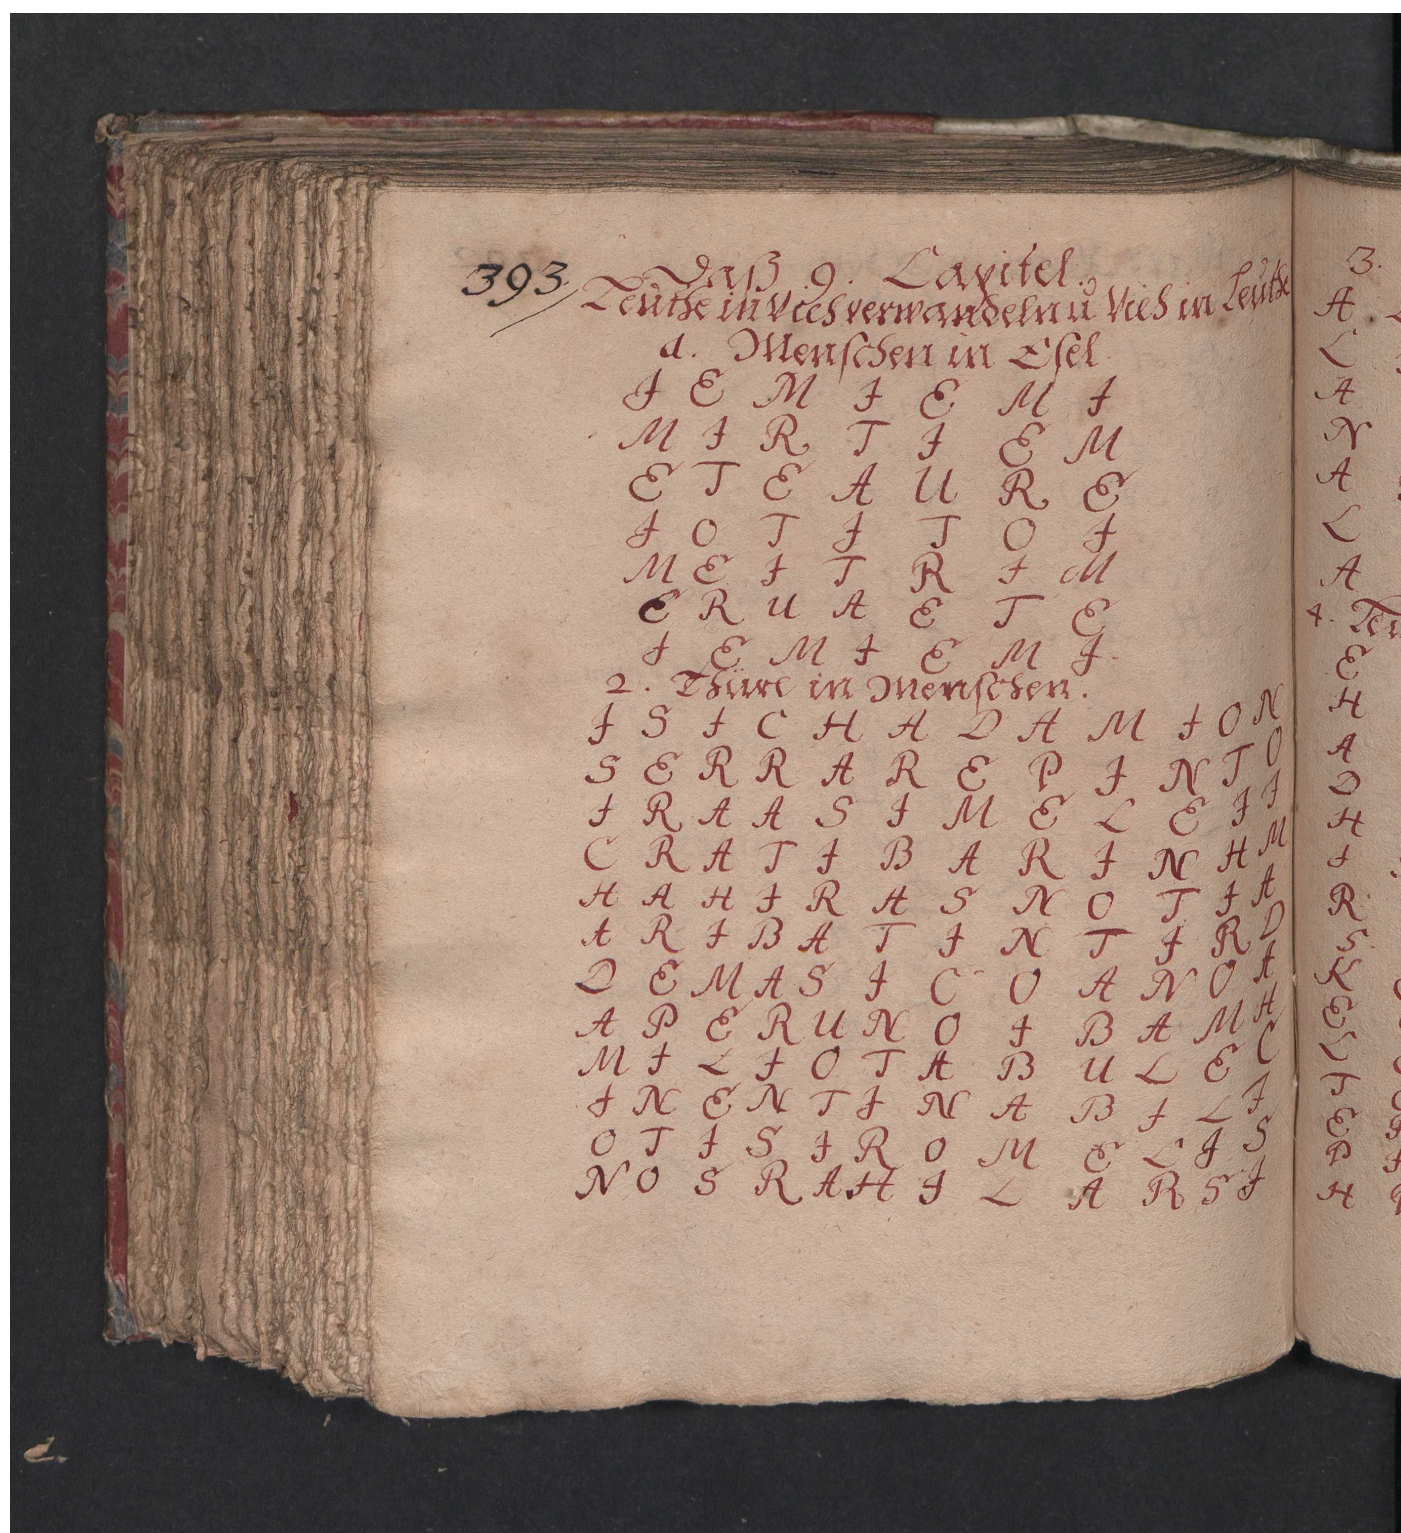 393
Daß 9. Capitel.
Leuthe in Vieh verwandeln u Vieh in Leuthe
a. Menschen in Esel
I E M I E M I
M I R T I E M
E T E A U R E
I O T I T O I
M E I T R I M
E R U A E T E
I E M I E M I.
2. Thüre in Menschen.
I S I C H A D A M I O N
S E R R A R E P I N T O
I R A A S I M E L E I I
C R A T I B A R I N H M
H A H I R A S N O T I A
A R I B A T I N T I R D
D E M A S I C O A N O A
A P E R U N O I B A M H
M I L I O T A B U L E C
I N E N T I N A B I L I
O T I S I R O M E L I S
N O S R A H I L A R S I
3.
A
L
A
N
A
L
A
4.
E
H
A
D
H
I
R
S
K
E
L
T
E
P
H